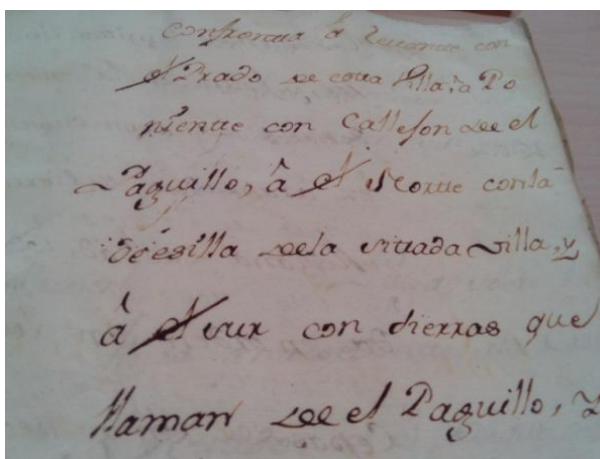 Confrontar á Levante con
el Prado de esta villa, á Po
niente con Callejon de el
Paguillo, á el Norte con la
Dehesilla de la citada villa, y
á el sur con tierras que
llaman de el Paguillo, y